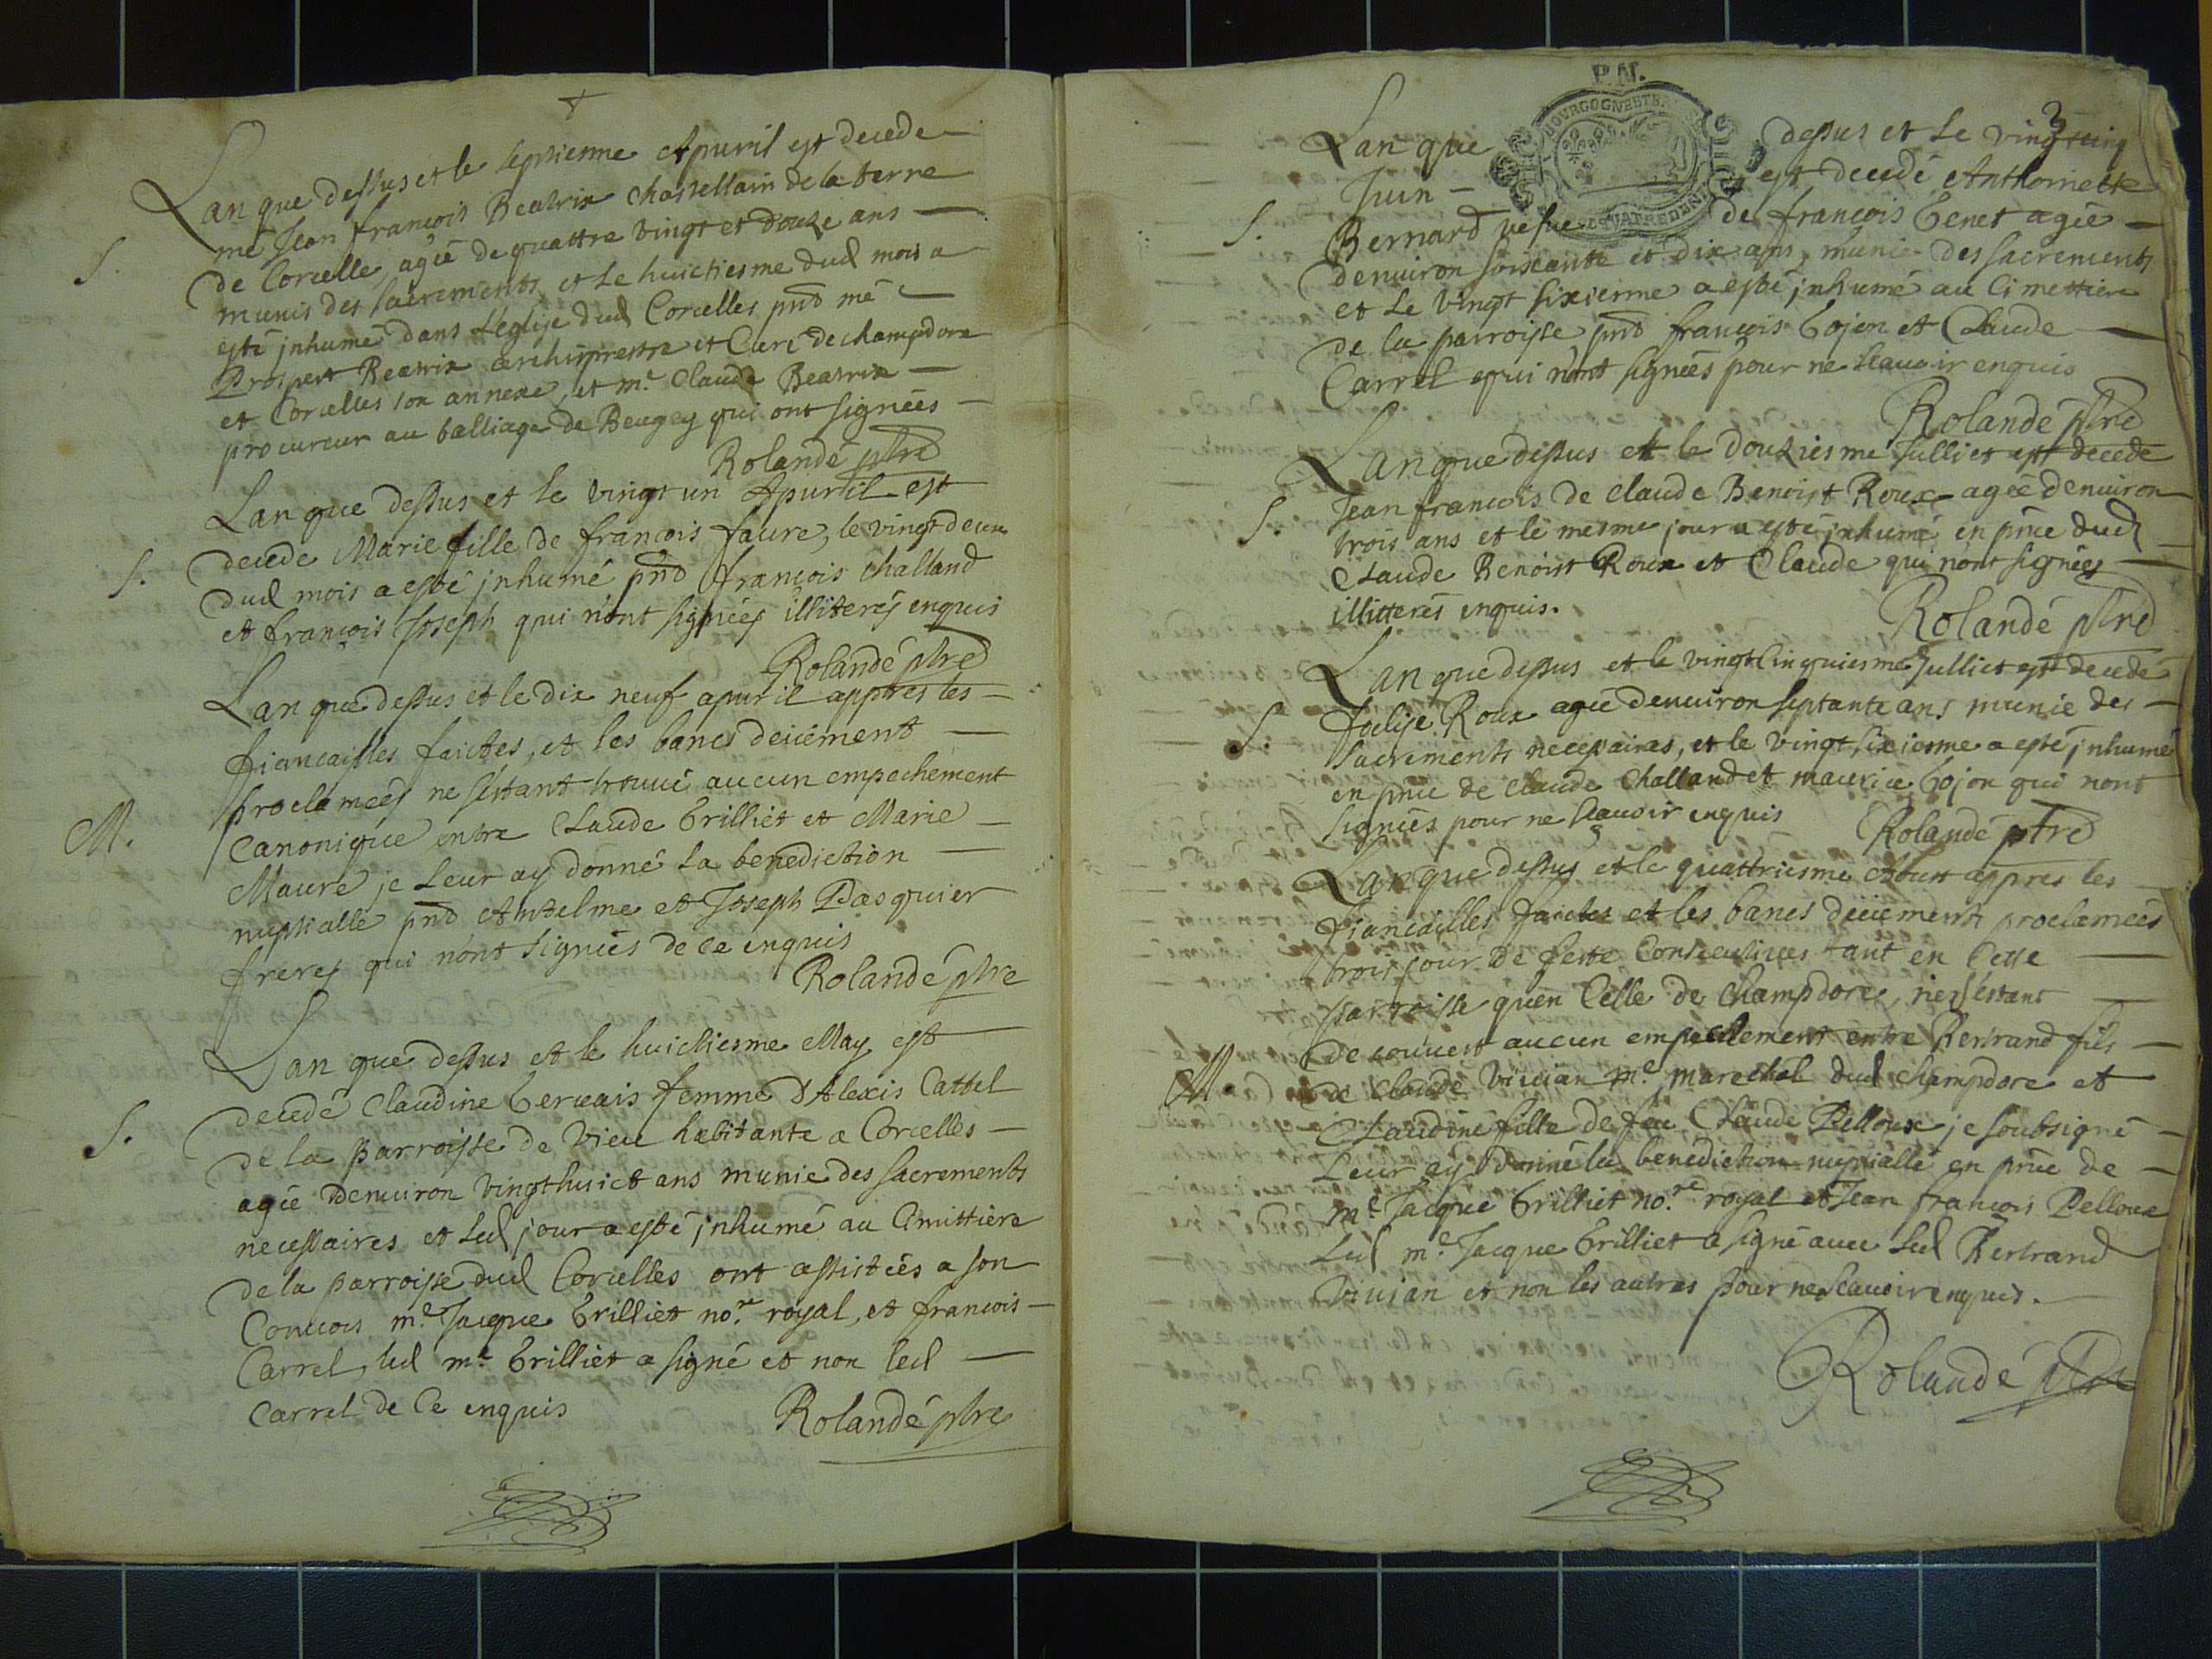 Lan que dessus et le septienme Apuril est decede
me Jean francois Beatrix chastellain de la terre
S. de Corcelle, agéé de quattre vingt et douze ans
munis des sacrements et le huictiesme dud mois a
esté jnhumé dans L'église dud Corcelles pnt me
Prospert Beatrix archiprestre et Curé de champdore
et Corcelles son annexe, et me Claude Beatrix
procureur au balliage de Beugey qui ont signéés
Rolandé ptre
Lan que dessus et le vingt un Apuril est
S. decede Marie fille de francois faure, le vingt deux
dud mois a esté jnhumé pnt francois challand
et francois Joseph qui n'ont signéés illiterés enquis
Rolandé ptre
Lan que dessus et le dix neuf apuril appres les
fiancailles faictes, et les bancs deüement
proclaméés ne s'estant trouué aucun empechement
M. Canonique entre Claude Trilliet et Marie
Maure je Leur ay donné la benediction
nuptialle pnt Antelme et Joseph Pasquier
freres qui n'ont signéés de ce enquis
Rolandé ptre
Lan que dessus et le huictiesme May est
decedé Claudine Geruais femme d'Alexis Cattel
S. de la parroisse de Vieu habitante a Corcelles
agéé denuiron vingthuict ans munie des sacrements
necessaires et Led jour a esté jnhumé au Cimittière
de la parroisse dud Corcelles ont assistéés a son
Conuois me Jacque Trilliet no.re royal, et francois
Carrel, led me Trilliet a signé et non led
Carrel de Ce enquis
Rolandé ptre
P.N.
BOURGOGNE ET BRESSE
QVATRE DEN
3
Lan que dessus et Le vingt cinq
Juin est decedé Anthoinette
S. Bernard vefue de francois Genet agéé
denuiron soixcante et dix ans, munie des sacrements
et Le vingt sixienme a esté jnhumé au Cimettiere
de la parroisse pnt francois Gojon et Claude
Carrel qui n'ont signéés pour ne scauoir enquis
Rolandé ptre
Lan que dessus et le douziesme Julliet est decede
S. Jean francois de claude Benoist Roux agéé denuiron
trois ans et le mesme jour a esté jnhumé en pnce dud
Claude Benoist Roux et Claude qui n'ont signéés
illitterés enquis.
Rolandé ptre
Lan que dessus et le vingtcinquiesme Julliet est decedé
Roux agéé denuiron septante ans munie des
S. sacrements necessaires, et le vingt sixiesme a esté jnhumé
en pnce de claude Challand et maurice Gojon qui nont
signéés pour ne scauoir enquis
Rolandé ptre
Lan que dessus et le quattriesme Aoust appres les
fiancailles faictes et les bancs deüement proclaméés
trois jour de feste Consecutiues tant en Cette
parroisse qu'en Celle de Champdore, ne s'estant
decouuert aucun empechement entre Bertrand fils
M. de Claude Viuian me marechal dud Champdore et
Claudine fille de feu Claude Pelloux je soubsigné
Leur ay donné la benediction nuptialle en pnce de
me Jacque Trilliet no.re royal et Jean francois Pelloux
Led me Jacque Trilliet a signé auec Led Bertrand
Viuian et non les autres pour ne scauoir enquis.
Rolandé ptre